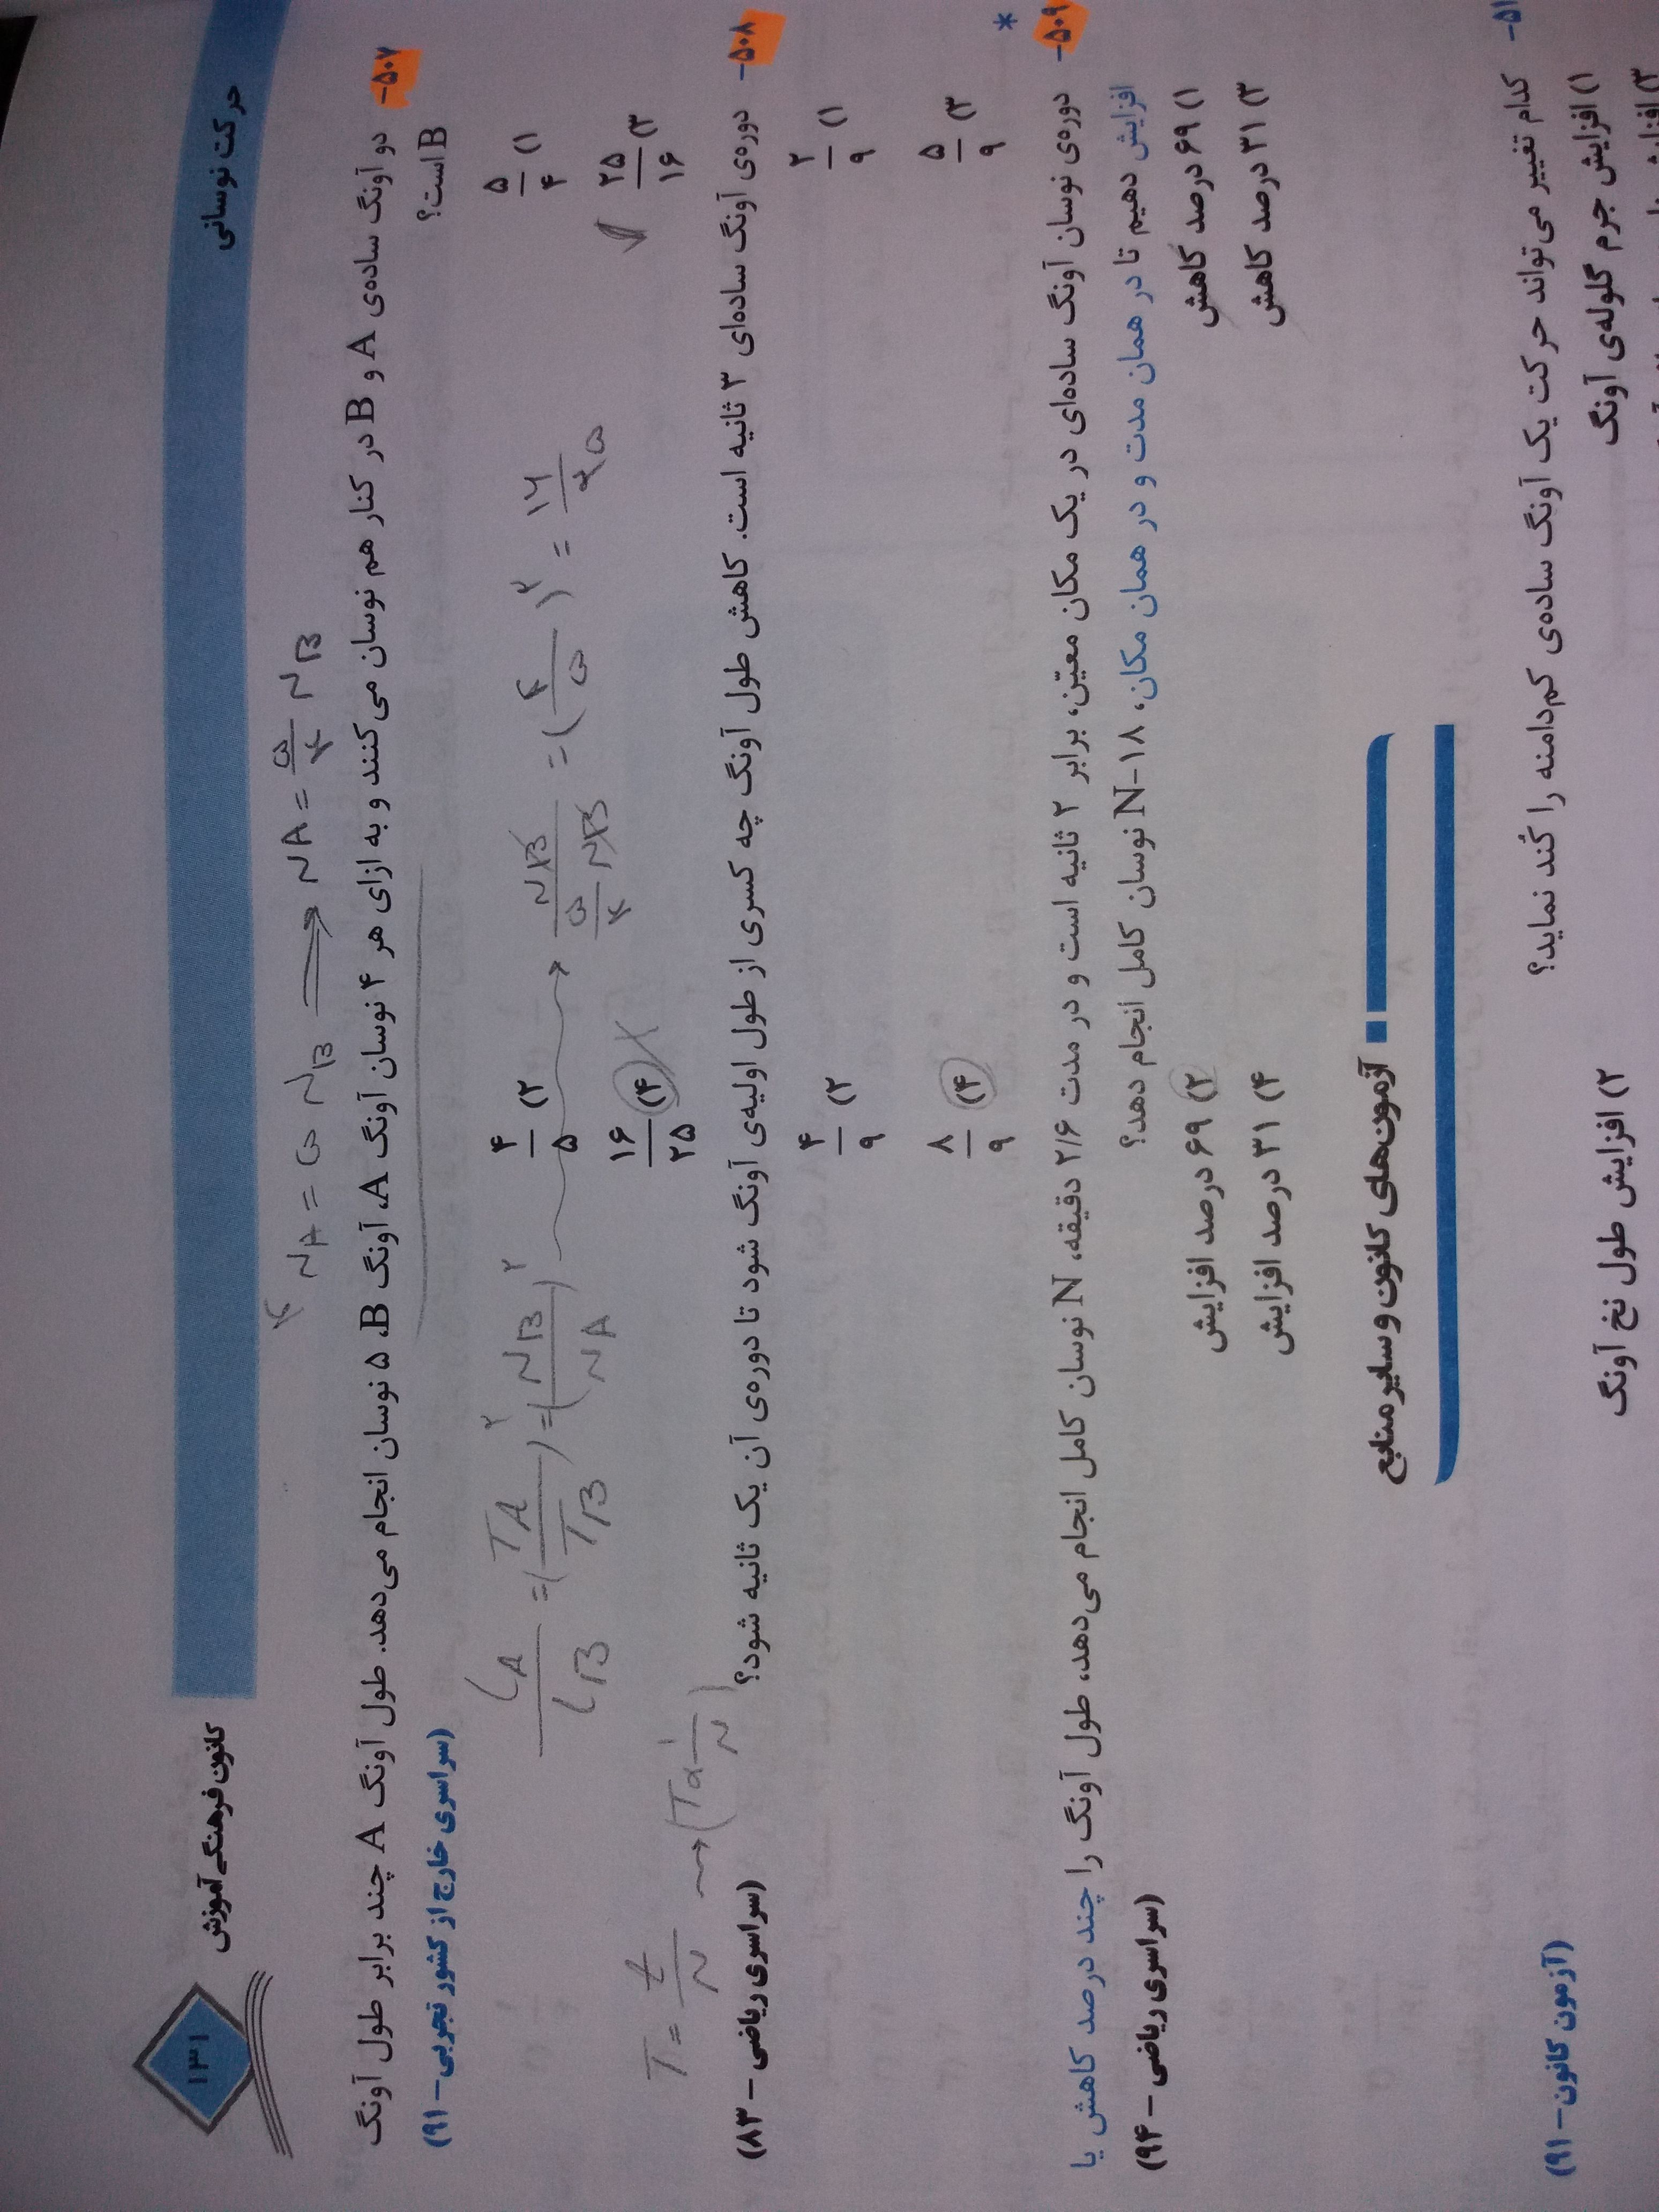 حرکت نوسانی
کانون فرهنگی آموزش
۱۳۱
۴ NA = ۵ NB ⟹ NA = ۵/۴ NB
۵۰۷- دو آونگ ساده‌ی A و B در کنار هم نوسان می‌کنند و به ازای هر ۴ نوسان آونگ A، آونگ B، ۵ نوسان انجام می‌دهد. طول آونگ A چند برابر طول آونگ
B است؟ (سراسری خارج از کشور تجربی - ۹۱)
۱) ۵/۴ ۲) ۴/۵
۳) ۲۵/۱۶ ۴) ۱۶/۲۵
LA/LB = (TA/TB)۲ = (NB/NA)۲ → NB/(۵/۴ NB) = (۴/۵)۲ = ۱۶/۲۵
T = t/N → (T α ۱/N)
۵۰۸- دوره‌ی آونگ ساده‌ای ۳ ثانیه است. کاهش طول آونگ چه کسری از طول اولیه‌ی آونگ شود تا دوره‌ی آن یک ثانیه شود؟ (سراسری ریاضی - ۸۳)
۱) ۲/۹ ۲) ۴/۹
۳) ۵/۹ ۴) ۸/۹
*
۵۰۹- دوره‌ی نوسان آونگ ساده‌ای در یک مکان معیّن، برابر ۲ ثانیه است و در مدت ۲/۶ دقیقه، N نوسان کامل انجام می‌دهد، طول آونگ را چند درصد کاهش یا
افزایش دهیم تا در همان مدت و در همان مکان، N-۱۸ نوسان کامل انجام دهد؟ (سراسری ریاضی - ۹۴)
۱) ۶۹ درصد کاهش ۲) ۶۹ درصد افزایش
۳) ۳۱ درصد کاهش ۴) ۳۱ درصد افزایش
آزمون‌های کانون و سایر منابع
کدام تغییر می‌تواند حرکت یک آونگ ساده‌ی کم‌دامنه را کُند نماید؟ (آزمون کانون - ۹۱)
۱) افزایش جرم گلوله‌ی آونگ ۲) افزایش طول نخ آونگ